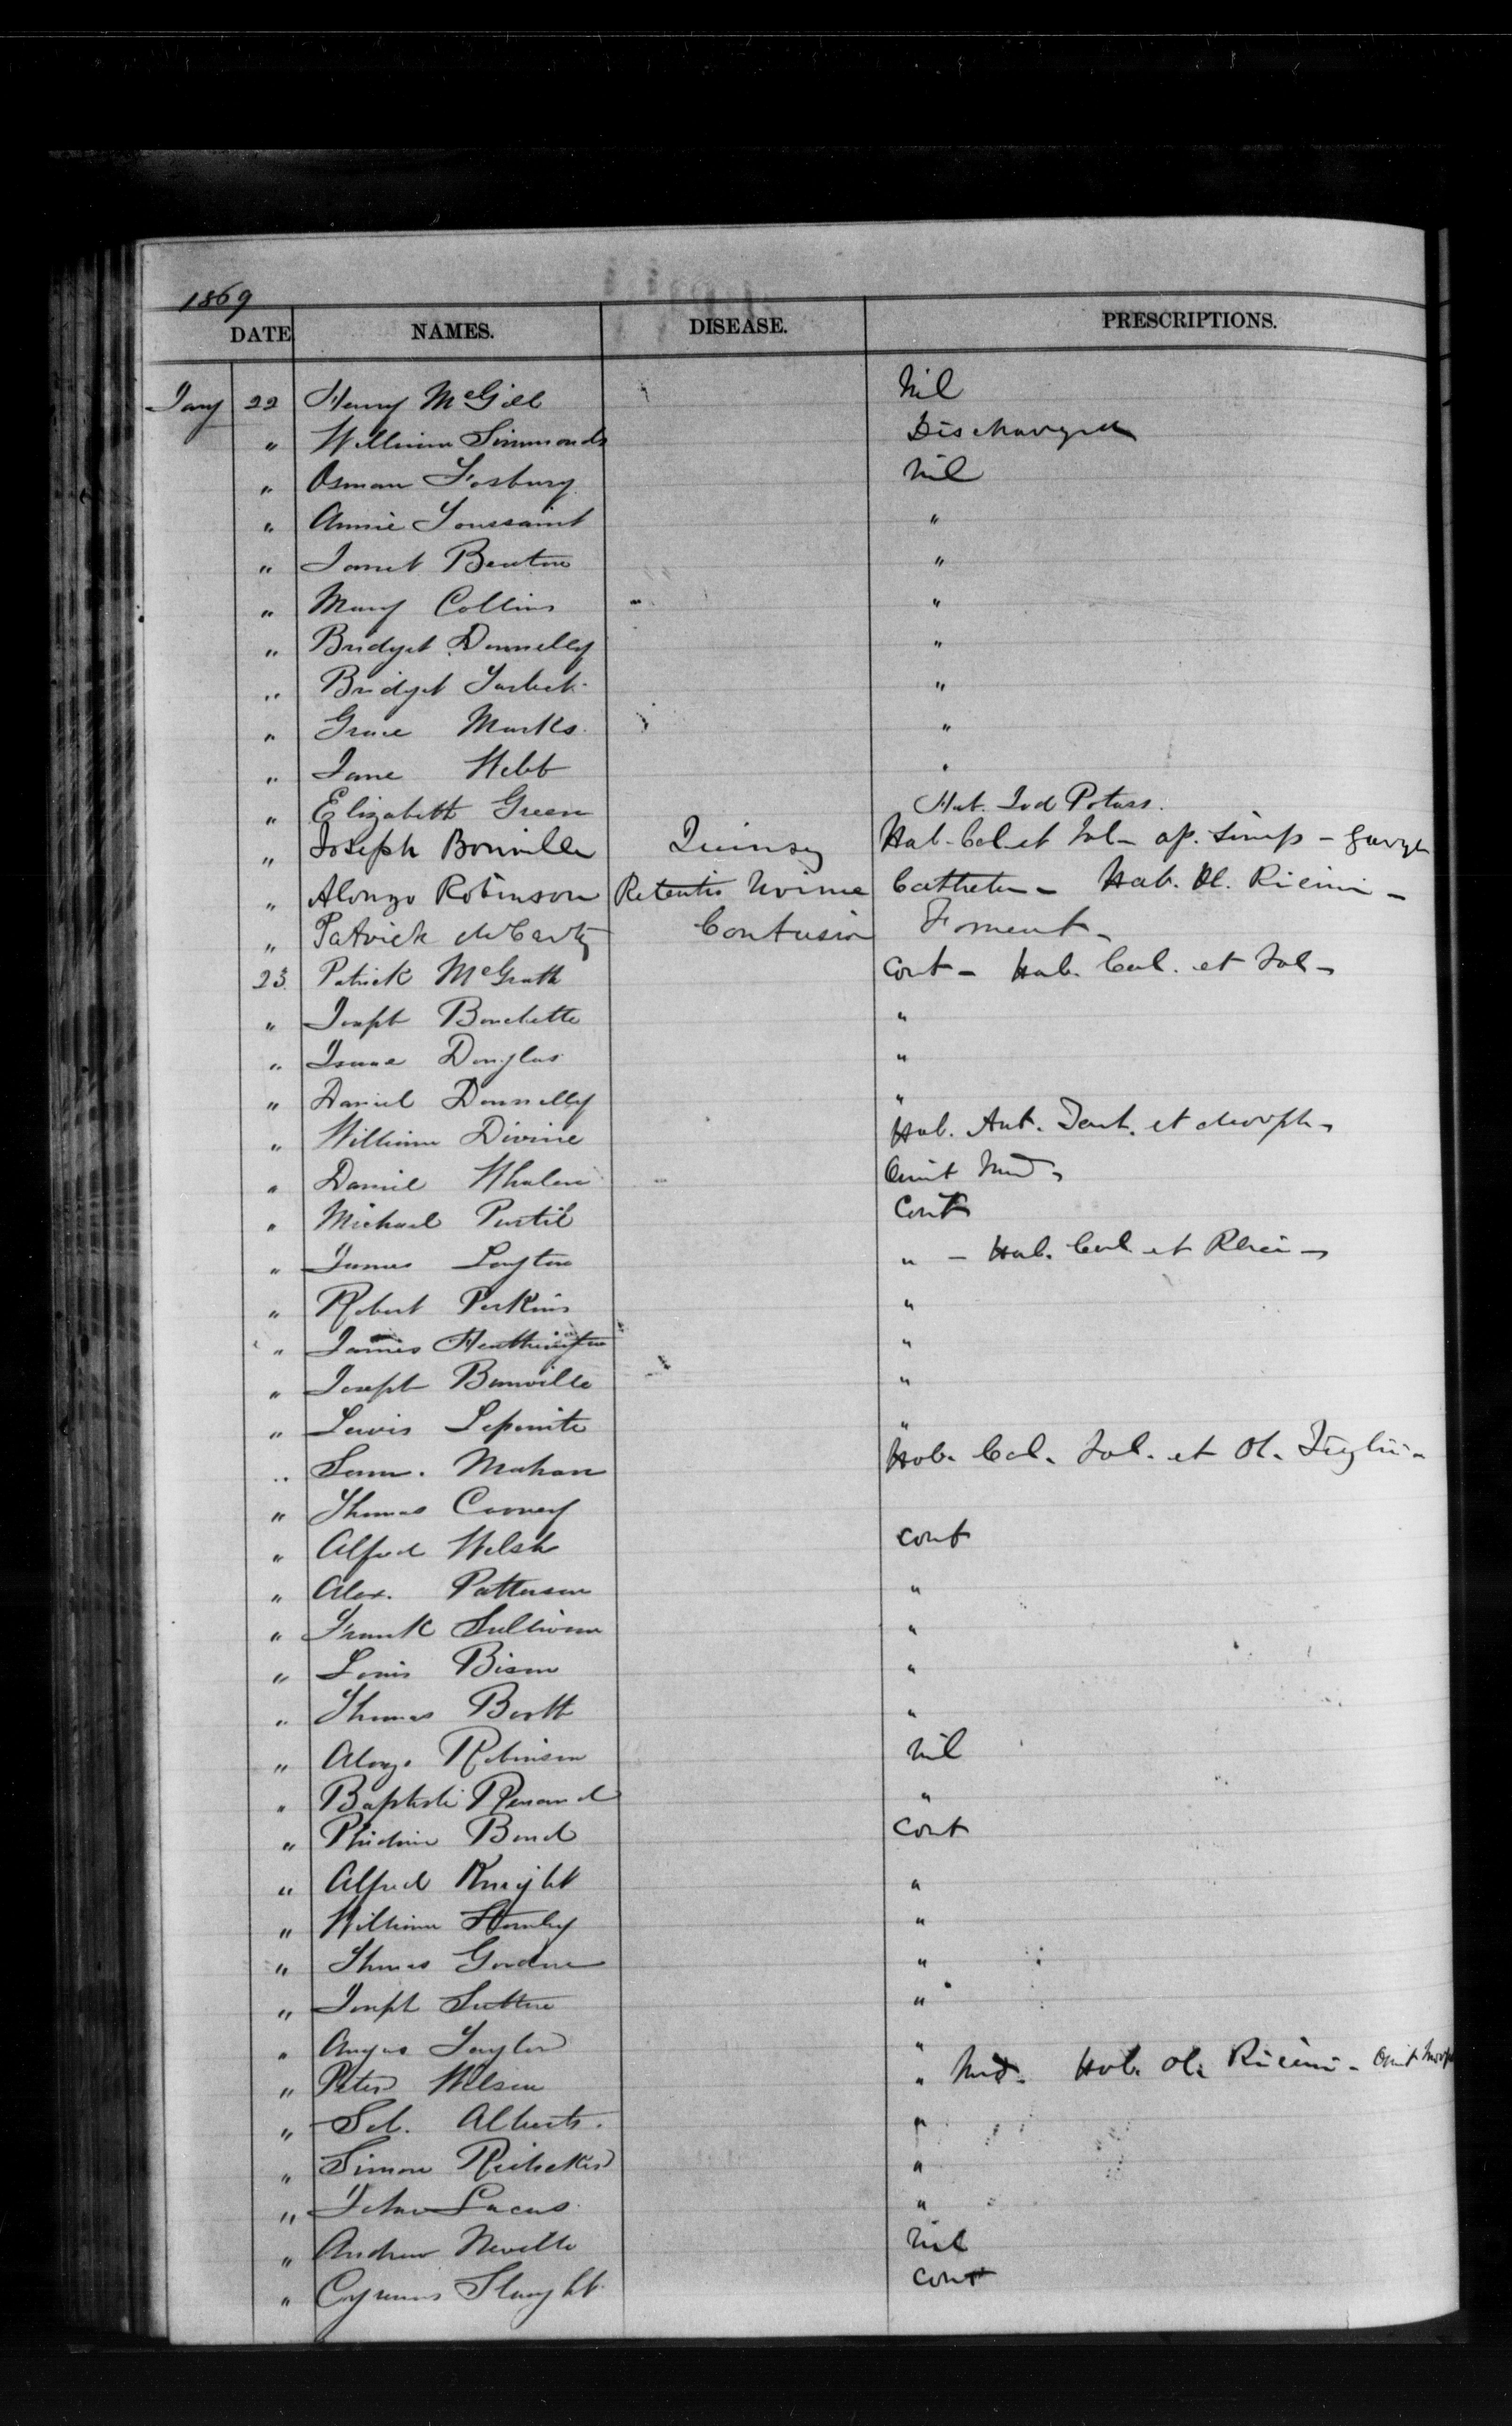 1869
DATE NAMES. DISEASE. PRESCRIPTIONS.
Jany 22 Henry McGill Nil
" William Simmonds Discharged
" Osman Fosbury Nil
" Annie Toussaint "
" Janet Benton "
" Mary Collins "
" Bridget Donnelly "
" Bridget "
" Grace Marks "
" Jane Webb "
" Elizabeth Green Hab. Iod Potass.
" Joseph Bonville Quinsy Hab. Col et Jal - ap. simp - Gargle
" Alonzo Robinson Retentio Urinæ Catheter - Hab. Ol. Ricini -
" Patrick McCarty Contusion Foment -
23 Patrick McGrath Cont - Hab. Cal. et Jal -
" Joseph Bouchette "
" Isaac Douglas "
" Daniel Donnelly "
" William Divine Hab. Ant. Tart. et Morph -
" Daniel Whalen Omit Med -
" Michael Purtil Cont
" James Layton " - Hab. Cal et Rhei -
" Robert Perkins "
" James "
" Joseph Bonville "
" Lewis "
" Sam. Mahan Hab. Cal. Jal. et Ol. Tiglii -
" Thomas Cooney
" Alfred Welsh cont
" Alex. Patterson "
" Frank Sullivan "
" Louis Bison "
" Thomas Booth "
" Alonzo Robinson Nil
" Baptiste Renand "
" Bond Cont
" Alfred Knight "
" William Stanley "
" Thomas Gordon "
" Joseph Sutton "
" Angus Taylor "
" Peter Wilson " Med. Hab. Ol. Ricini - Omit Morph
" Sol. Alberts. "
" Simon "
" John Lucas "
" Andrew Neville Nil
" Cyrenus Slaught cont